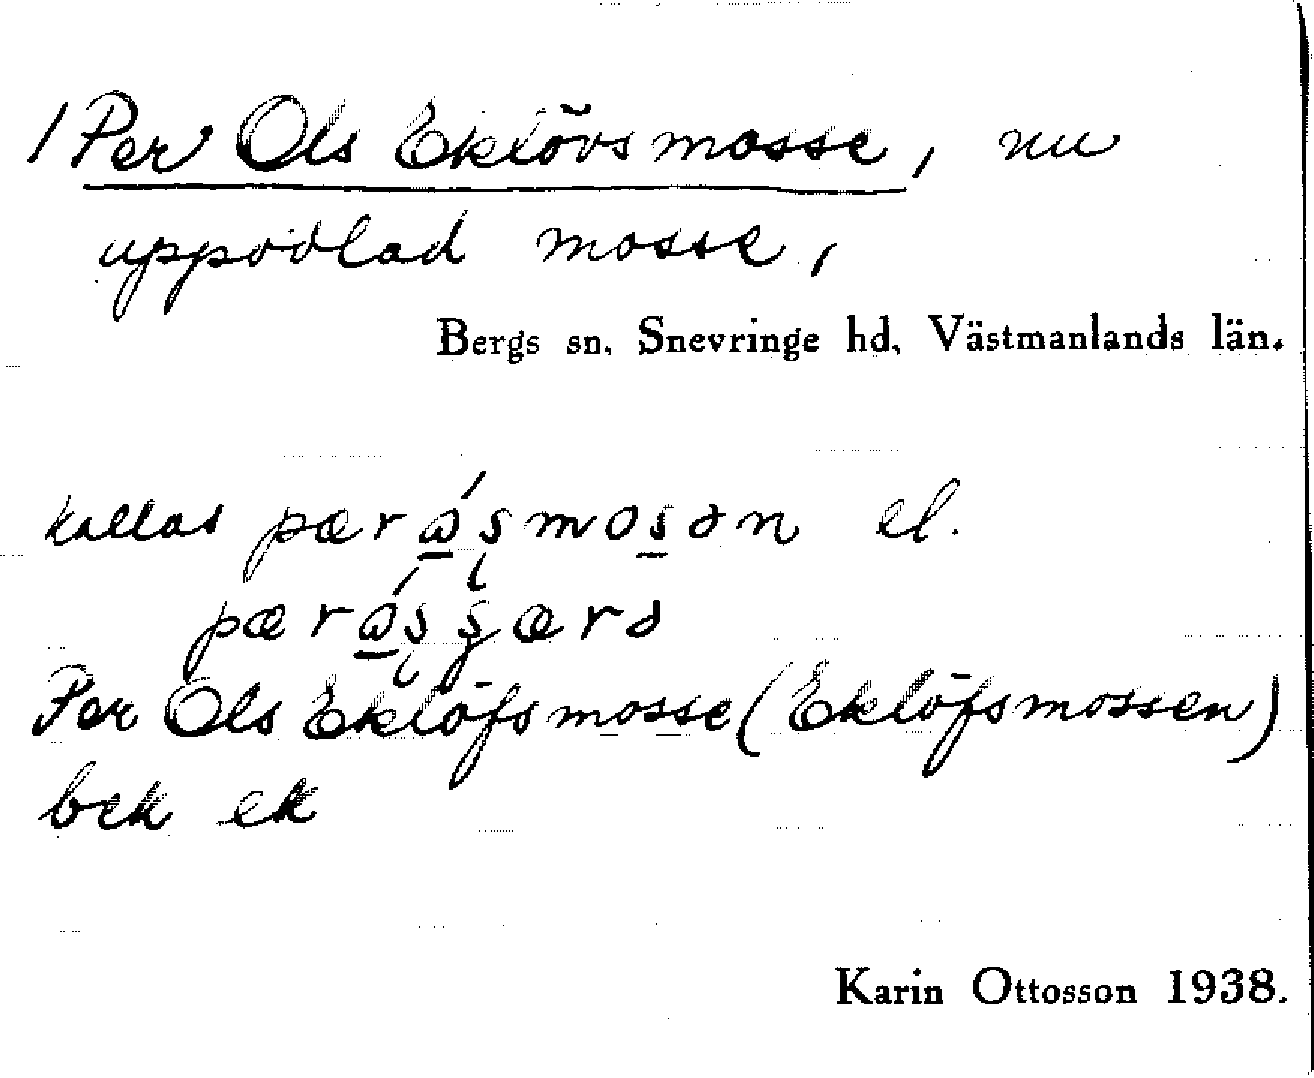 1 Per Ols Eklövs mosse, nu
uppodlad mosse,
Bergs sn, Snevringe hd, Västmanlands län.
kallas pærώ̲ʂmos̲ən el.
pærώ̲ʂ jærə
Per Ols Eklöfs mosse (Eklöfsmossen)
bek ek
Karin Ottosson 1938.